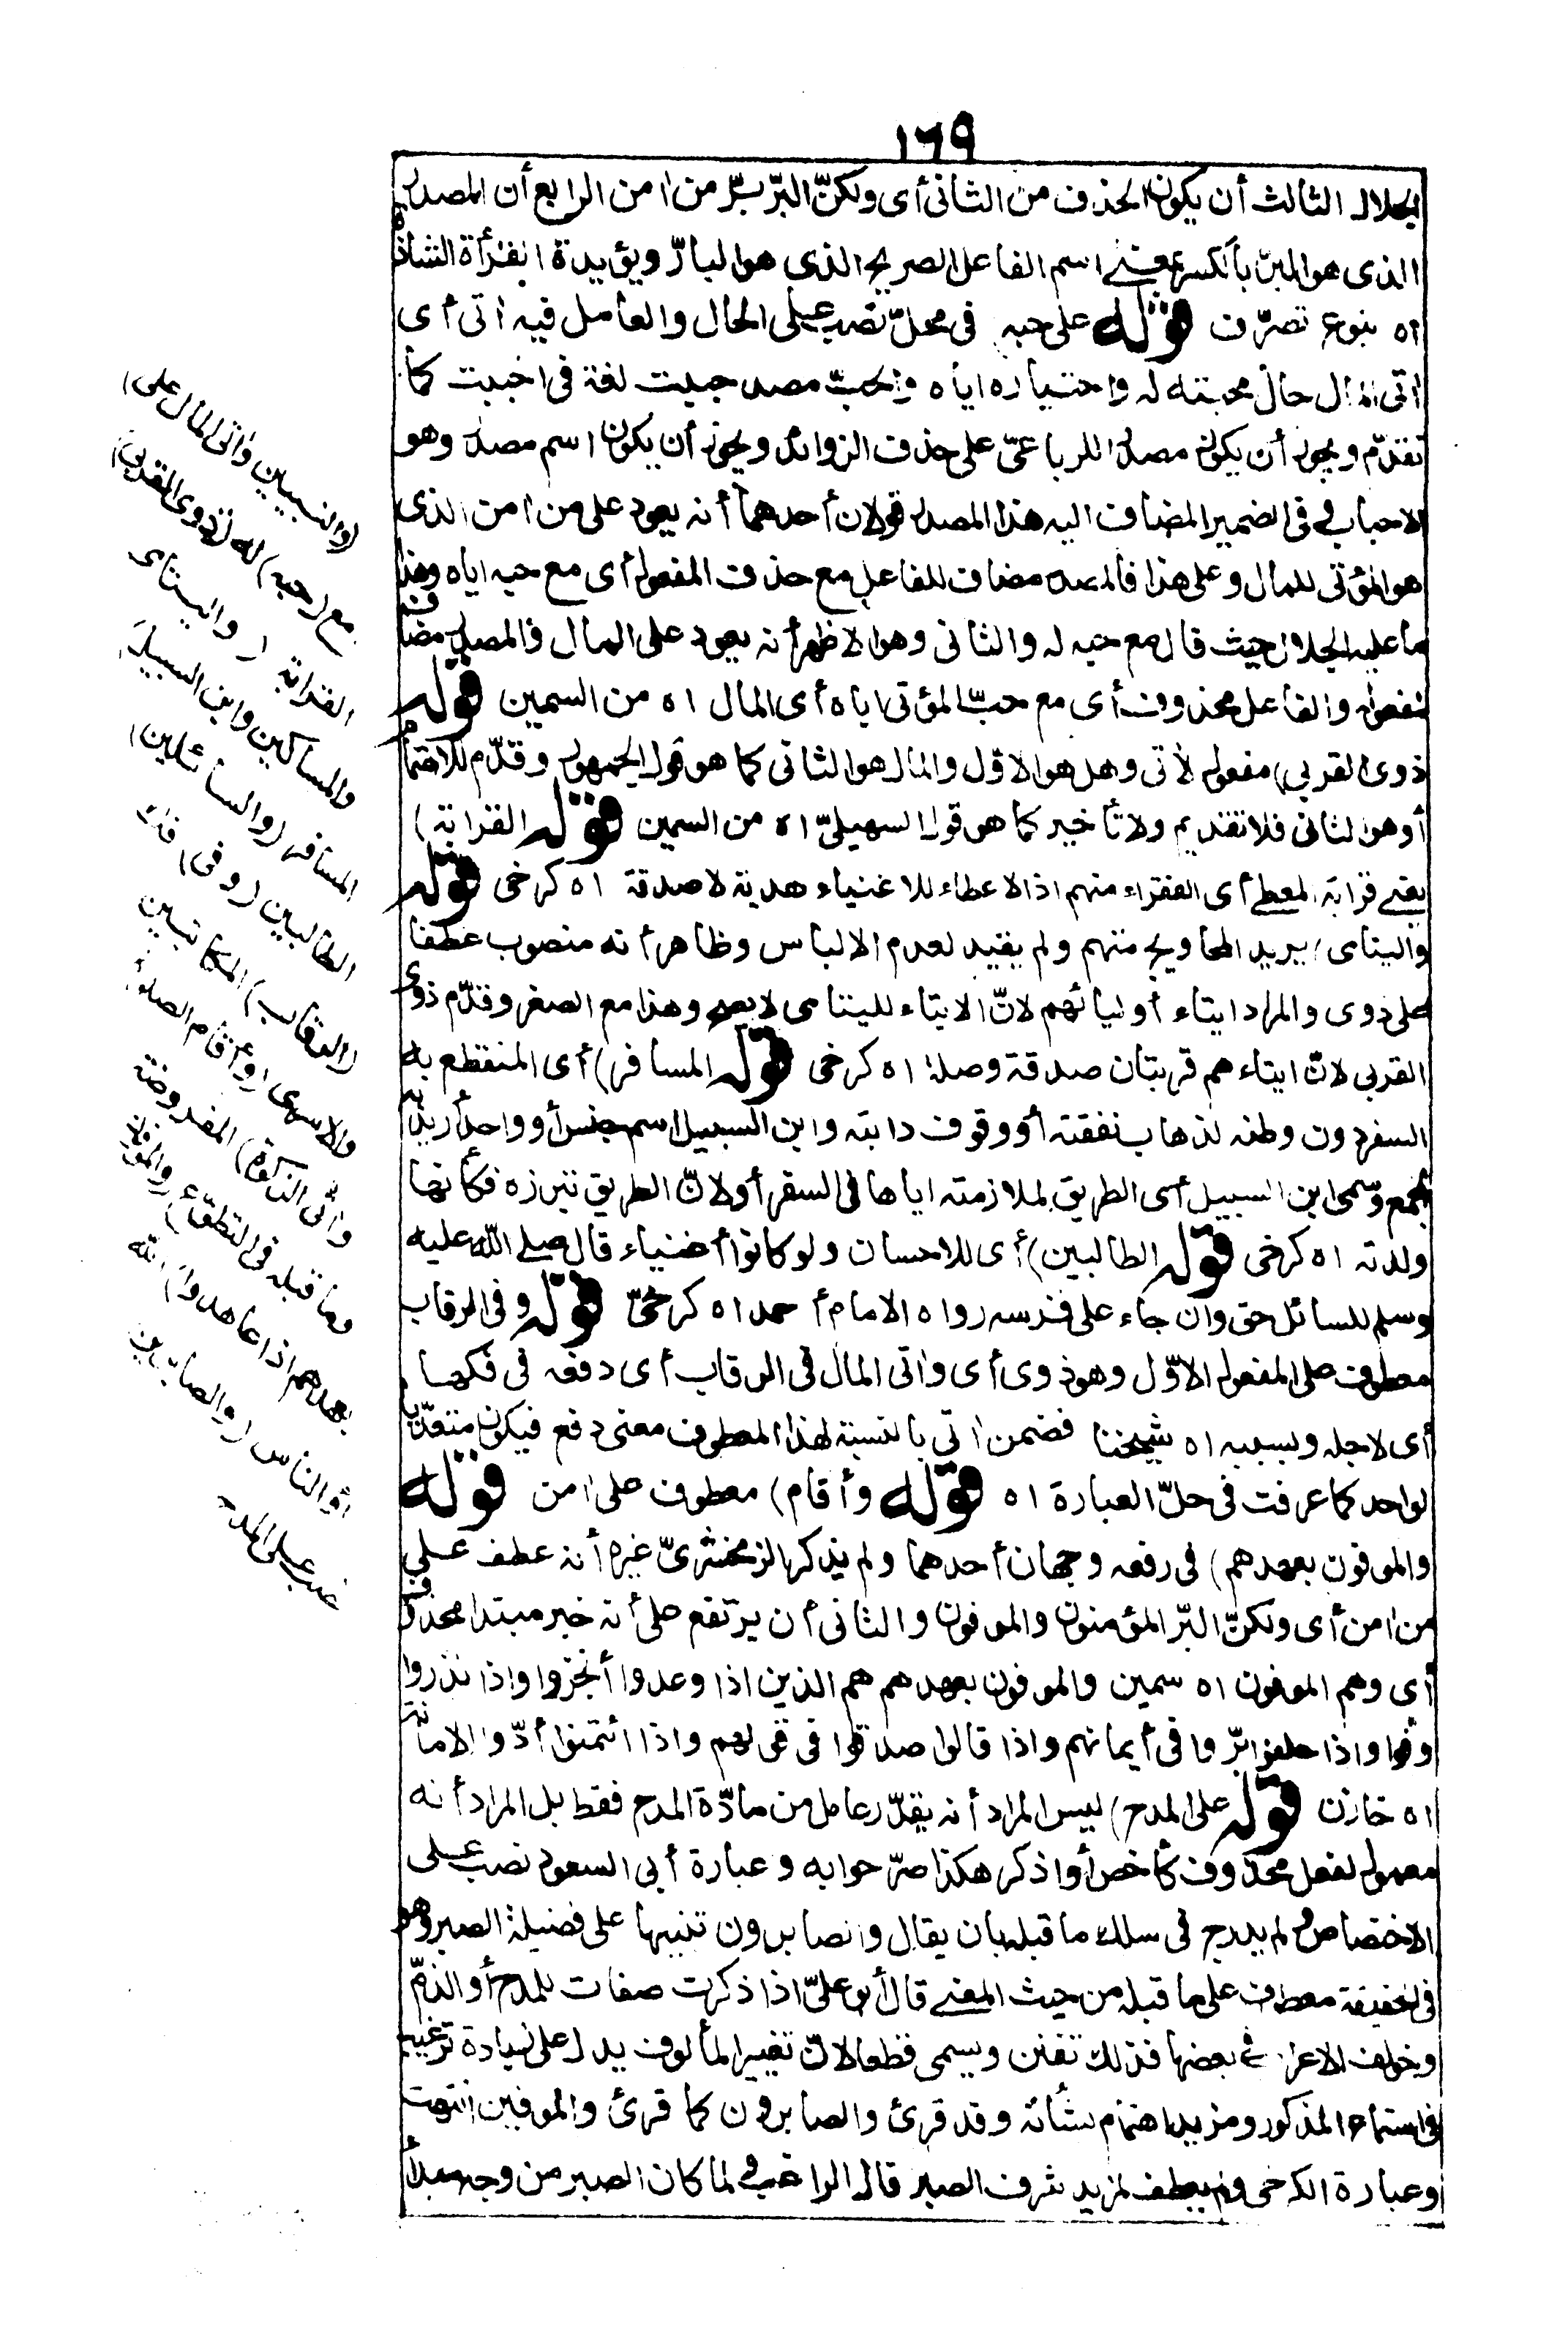 ١٦٩
الجلال الثالث أن يكون الحذف من الثانى أى ولكنّ البرّ برّ من اٰمن الرابع أن المصدر
الذى هو البرّ بالكسر بمعنى اسم الفاعل الصريح الذى هو البارّ ويؤيدة القرأة الشاذة
اه بنوع تصرّف قوله على حبه فى محلّ نصب على الحال والعامل فيه اٰتى أى
اٰتى المال حال محبته له واختياره اياه والحبّ مصدر حببت لغة فى احببت كما
تقدّم ويجوز أن يكون مصدرا للرباعىّ على حذف الزوائد ويجوز أن يكون اسم مصدر وهو
الاحباب وفى الضمير المضاف اليه هذا المصدر قولان أحدهما أنه يعود على من اٰمن الذى
هو المؤتى للمال وعلى هذا فالمصدر مضاف للفاعل مع حذف المفعول أى مع حبه اياه وهذا
ما عليه الجلال حيث قال مع حبه له والثانى وهو الاظهر أنه يعود على المال فالمصدر مضاف
لمفعوله والفاعل محذوف أى مع حبّ المؤتى اياه أى المال اه من السمين قوله
ذوى القربى) مفعول لأتى وهل هو الاوّل والمال هو الثانى كما هو قول الجمهور وقدّم للاهتمام
أو هو الثانى فلا تقديم ولا تأخير كما هو قول السهيلىّ اه من السمين قوله القرابة)
يعنى قرابة المعطى أى الفقراء منهم اذ الاعطاء للاغنياء هدية لا صدقة اه كرخى قوله
واليتامى) يريد المحاويج منهم ولم يقيد لعدم الالباس وظاهر أنه منصوب عطفا
على ذوى والمراد ايتاء أوليائهم لانّ الايتاء لليتامى لا يصح وهذا مع الصغر وقدّم ذوى
القربى لانّ ايتاءهم قربتان صدقة وصلة اه كرخى قوله المسافر) أى المنقطع به
السفر دون وطنه لذهاب نفقته أو وقوف دابته وابن السبيل اسم جنس أو واحد أريد به
الجمع وسمى ابن السبيل أى الطريق لملازمته اياها فى السفر أو لانّ الطريق تبرزه فكأنها
ولدته اه كرخى قوله الطالبين) أى للاحسان ولو كانوا أغنياء قال صلى اللّه عليه
وسلم للسائل حق وان جاء على فرسه رواه الامام أحمد اه كرخىّ قوله وفى الرقاب
معطوف على المفعول الاوّل وهو ذوى أى واٰتى المال فى الرقاب أى دفعه فى فكها
أى لاجله وبسببه اه شيخنا فضمن اٰتى بالنسبة لهذا المعطوف معنى دفع فيكون متعدّيا
لواحد كما عرفت فى حلّ العبارة اه قوله وأقام) معطوف على اٰمن قوله
والموفون بعهدهم) فى رفعه وجهان أحدهما ولم يذكر الزمخشرىّ غيره أنه عطف على
من اٰمن أى ولكنّ البرّ المؤمنون والموفون والثانى أن يرتفع على أنه خبر مبتدا محذوف
أى وهم الموفون اه سمين والموفون بعهدهم هم الذين اذا وعدوا أنجزوا واذا نذروا
وفوا واذا حلفوا برّوا فى أيمانهم واذا قالوا صدقوا فى قولهم واذا ائتمنوا أدّوا الامانة
اه خازن قوله على المدح) ليس المراد أنه يقدّر عامل من مادّة المدح فقط بل المراد أنه
معمول لفعل محذوف كأخص أو اذكر هكذا صرّحوا به وعبارة أبى السعود نصب على
الاختصاص ولم يدرج فى سلك ما قبله بان يقال والصابرون تنبيها على فضيلة الصبر وهو
فى الحقيقة معطوف على ما قبله من حيث المعنى قال أبو علىّ اذا ذكرت صفات للمدح أو الذمّ
وخولف الاعراب فى بعضها فذلك تفنن ويسمى قطعا لانّ تغيير المألوف يدل على زيادة ترغيب
فى استماع المذكور ومزيد اهتمام بشأنه وقد قرئ والصابرون كما قرئ والموفين انتهت
وعبارة الكرخى ولم يعطف لمزيد شرف الصبر قال الراغب ولما كان الصبر من وجه مبدأ
(والنبيين واٰتى المال على)
مع (حبه) له (ذوى القربى)
القرابة (واليتامى
والمساكين وابن السبيل)
المسافر (والسائلين)
الطالبين (وفى) فك
(الرقاب) المكاتبين
والاسرى (وأقام الصلوة
واٰتى الزكوة) المفروضة
وما قبله فى التطوّع (والموفون
بعهدهم اذا عاهدوا) اللّه
أو الناس (والصابرين
نصب على المدح